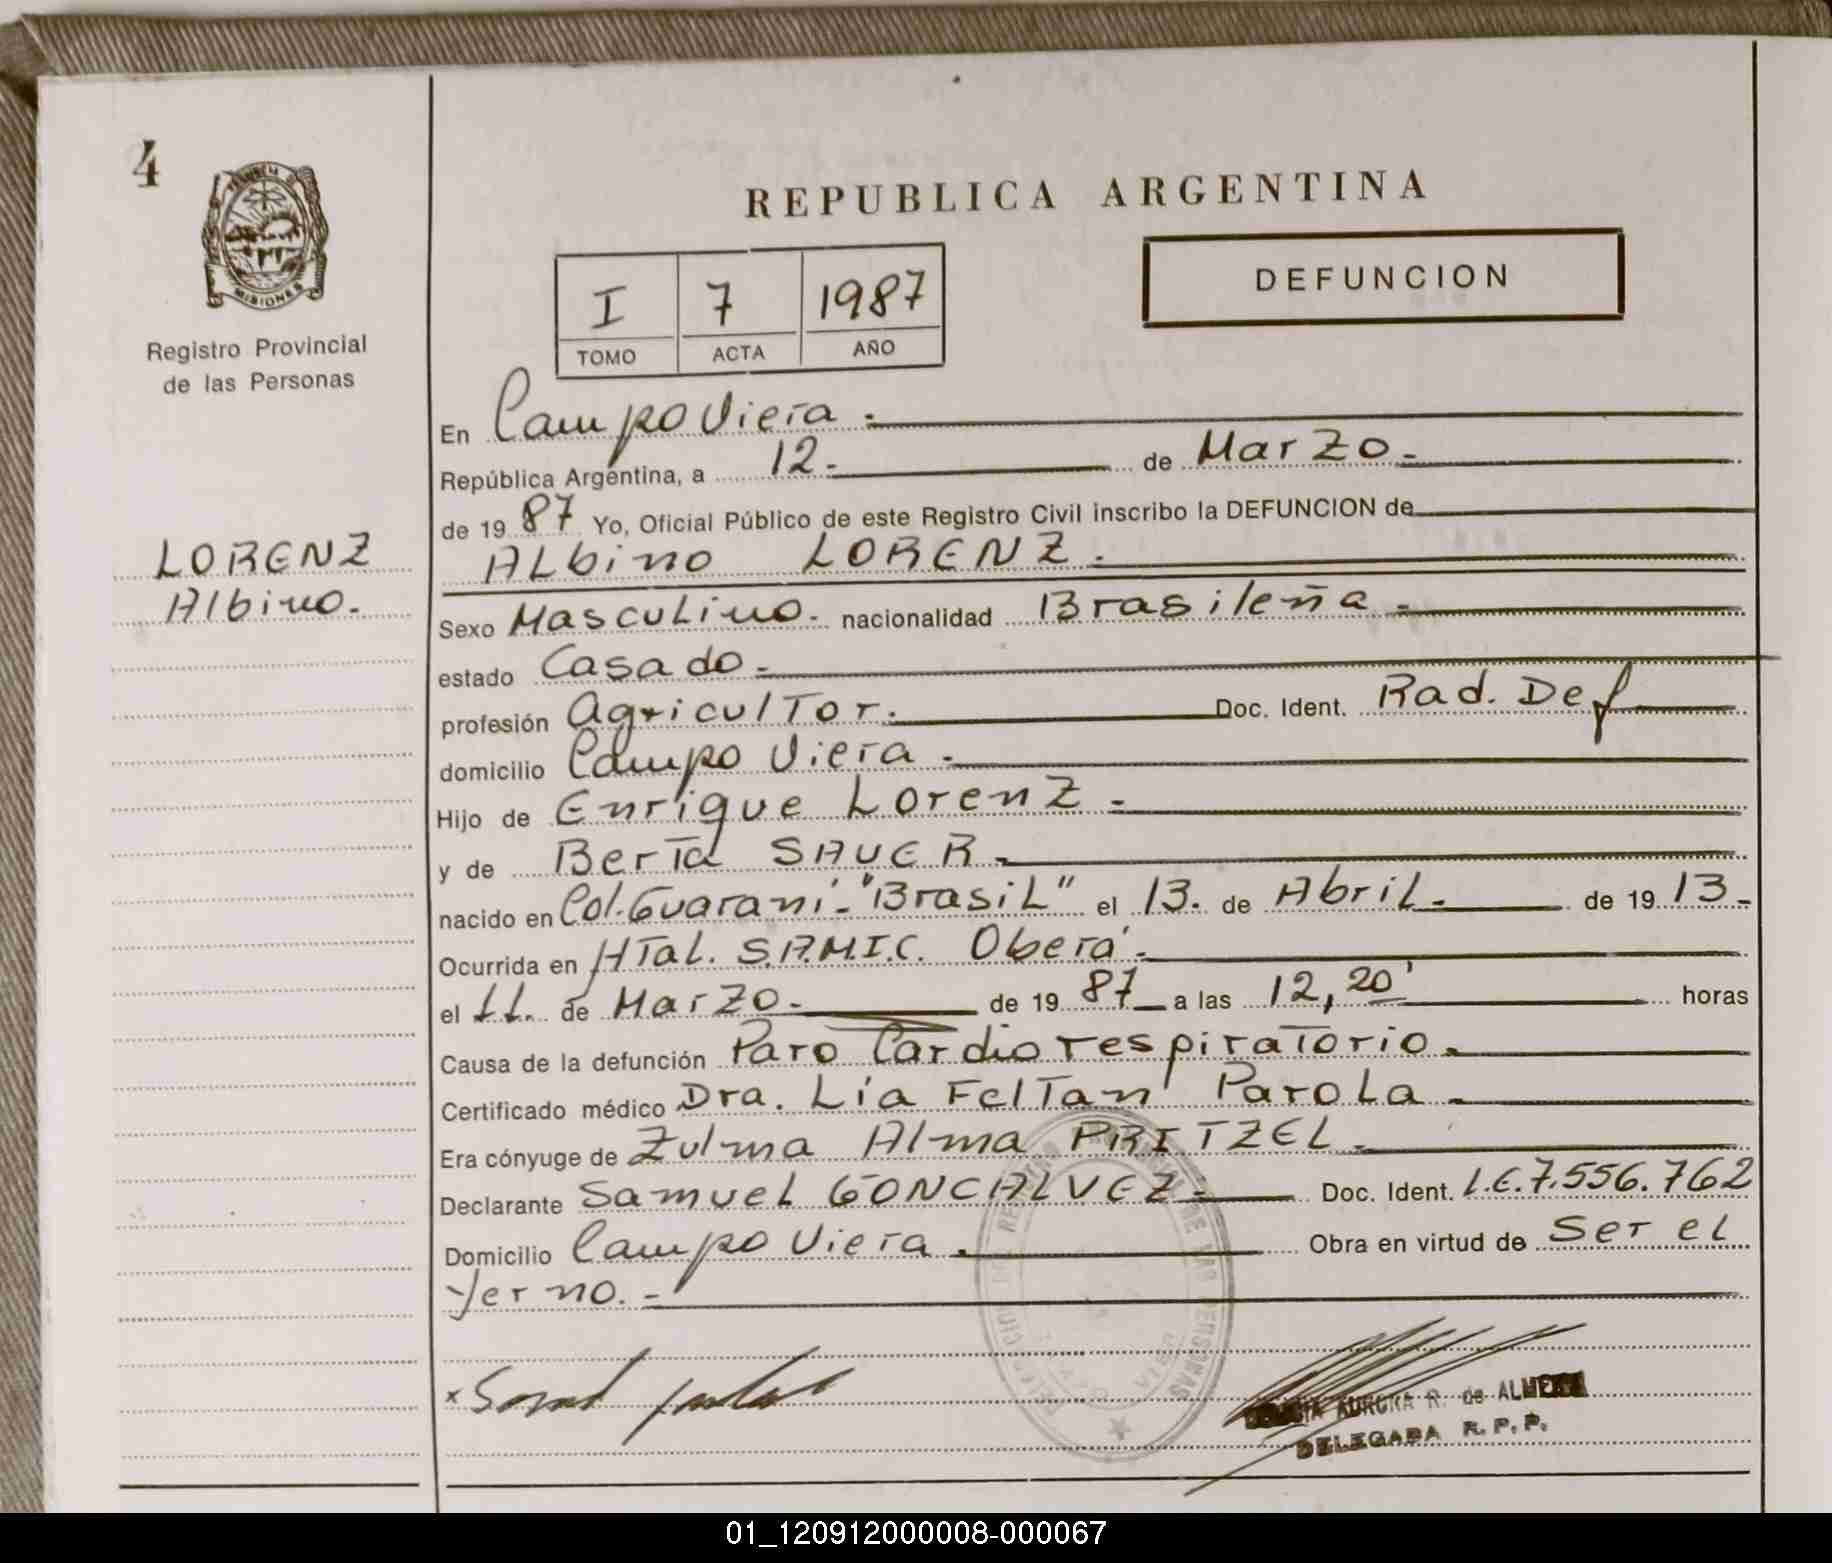 4
MISIONES
Registro Provincial
de las Personas
REPUBLICA ARGENTINA
I 7 1987
TOMO ACTA AÑO
DEFUNCION
LORENZ
Albino.
En Campo Viera.
República Argentina, a 12. de Marzo.
de 19 87 Yo, Oficial Público de este Registro Civil inscribo la DEFUNCION de
Albino LORENZ.
Sexo Masculino. nacionalidad Brasileña
estado Casado.
profesión Agricultor. Doc. Ident. Rad. Def
domicilio Campo Viera.
Hijo de Enrique Lorenz
y de Berta SAUER.
nacido en Col. Guaraní. "Brasil" el 13. de Abril. de 19 13.
Ocurrida en Htal. S.A.M.I.C. Oberá.
el 11. de Marzo. de 19 87 a las 12,20' horas
Causa de la defunción Paro Cardiorespiratorio.
Certificado médico Dra. Lía Feltan Parola
Era cónyuge de Zulma Alma PRITZEL.
Declarante Samuel GONCALVEZ. Doc. Ident. L.E.7.556.762
Domicilio Campo Viera. Obra en virtud de Ser el
Yerno.-
AURORA R. de ALMEIDA
DELEGADA R.P.P.
01_120912000008-000067